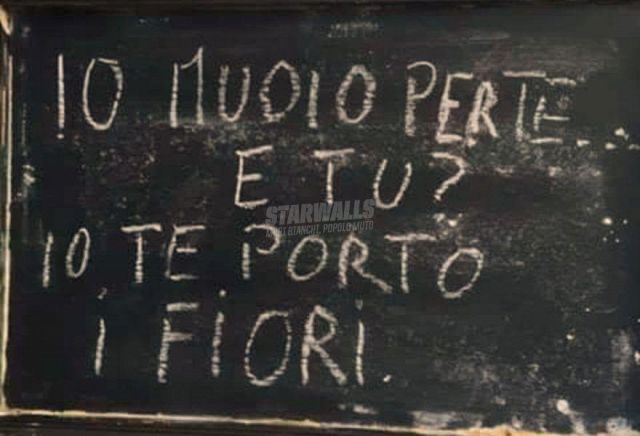 IO MUOIO PER TE...
E TU?
STARWALLS
MURI BIANCHI, POPOLO MUTO
IO TE PORTO
I FIORI.